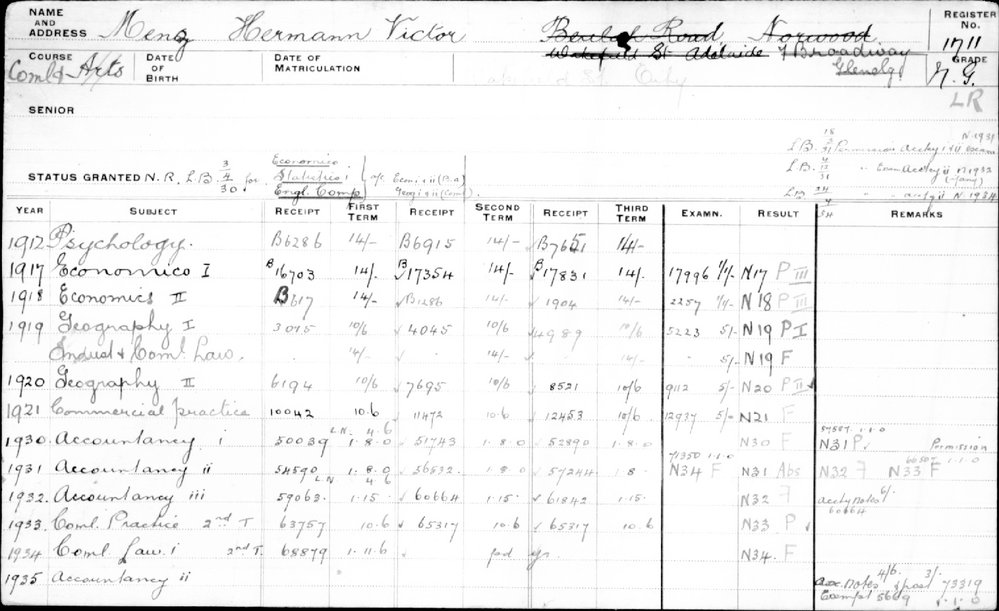 NAME AND ADDRESS Meng Hermann Victor Beulah Road Norwood REGISTER NO. 1711
Wakefield St Adelaide 7 Broadway Glenelg
COURSE Coml & Arts DATE OF BIRTH DATE OF MATRICULATION GRADE N.G.
LR
SENIOR
N 1931
L.B. 18 Permission Accty
L.B. 31 Exam Accty ii N 1932
STATUS GRANTED N.R. L.B. 3/4/30. for Economics Statistics Engl. Comp
N 1934
YEAR SUBJECT RECEIPT FIRST TERM RECEIPT SECOND TERM RECEIPT THIRD TERM EXAMN. RESULT REMARKS
1912 Psychology. B6286 14/- B6915 14/- B7651 14/-
1917 Economics I B16703 14/- B17354 14/- B17831 14/- 17996 1/1/- N17 P III
1918 Economics II B617 14/- B1286 14/- 1904 14/- 2257 1/1/- N18 P III
1919 Geography I 3015 10/6 4045 10/6 4989 10/6 5223 5/- N19 P I
Indust & Coml Law. 14/- 14/- 14/- 5/- N19 F
1920 Geography II 6194 10/6 7695 10/6 8521 10/6 9112 5/- N20 P II
1921 Commercial practice 10042 10.6 11472 10.6 12453 10/6 12937 5/- N21 F
L.N. 4.6
57587 1.1.0
1930 Accountancy i 50039 1.8.0 51743 1.8.0 52890 1.8.0 N30 F N31 P. Permission
71350 1.1.0
66507 1.1.0
1931 Accountancy ii 54590 1.8.0 56532 1.8.0 57244 1.8 N34 F N31 Abs N32 F N33 F
LN 4 6
1932 Accountancy iii 59063 1.15 60664 1.15 61842 1.15 N32 F Accty notes 6/. 60664
1933 Coml Practice 2nd T 63757 10.6 65317 10.6 65317 10.6 N33 P
1934 Coml Law. i 2nd T. 68879 1.11.6 pd yr. N34. F
1935 Accountancy ii
4/6. 3/.
Acc. notes & post 73319
Exempt 5669 1.1.0